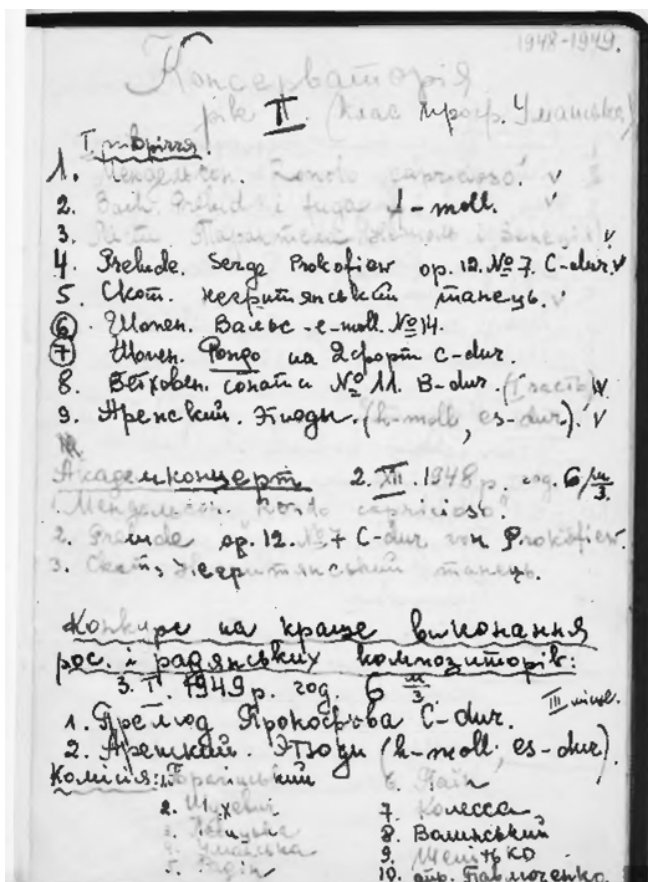 1948-1949.
Консерваторія
рік II (клас проф. Уманська)
I півріччя.
1. Мендельсон. Rondo capricioso. v
2. Bach. Prelud i fuga f-moll. v
3. Ліст. Тарантела і v
4. Prelude. Serge Prokofiew op. 12. № 7. C-dur. v
5. Скот. негритянський танець. v
6. Шопен. Вальс - e-moll. № 14.
7. Шопен. Рондо на 2 форт C-dur.
8. Бетховен. соната № 11. B-dur. (I часть) v
9. Аренский. Этюды. (h-moll, es-dur). v
Академконцерт 2. XII. 1948 р. год. 6
1. Мендельсон. Rondo capricioso.
2. Prelude op. 12. № 7 C-dur von Prokofiew.
3. Скот, Негритянський танець.
Конкурс на краще виконання
рос. і радянських композиторів:
1949 р. год. 6
1. Прелюд Прокоф'єва C-dur. III
2. Аренский. Этюды (h-moll, es-dur).
Комісія:
6. Пайн
7. Колесса,
4. Уманська 8. Волинський
9.
10. Павлюченко.